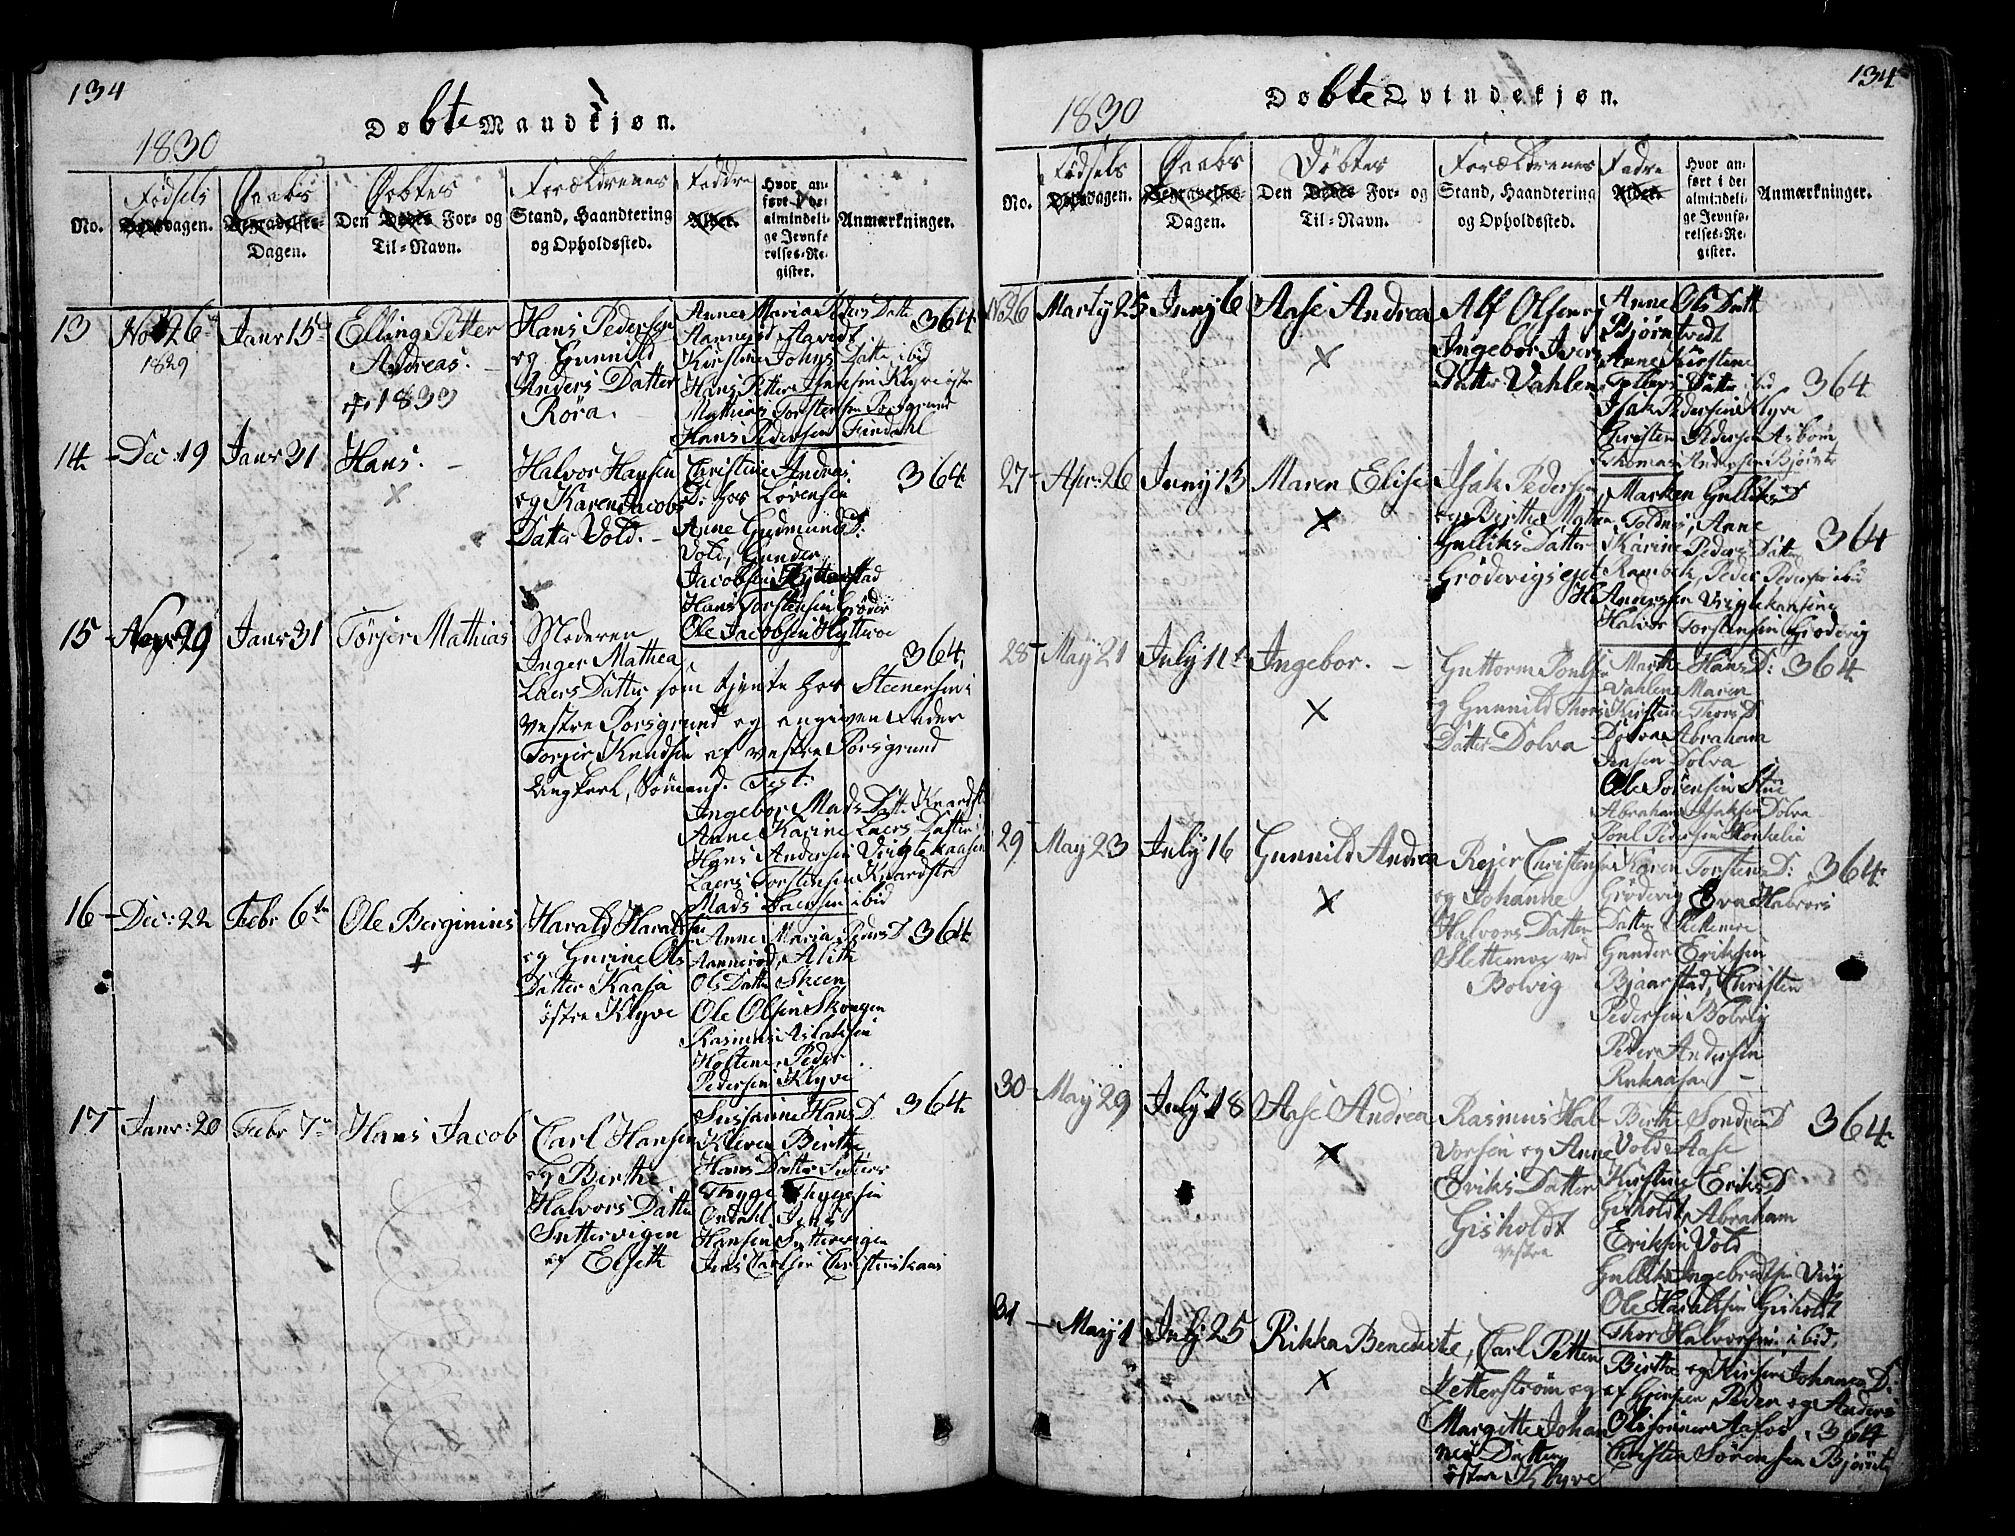 134
Døbte Mandkjøn.
1830
No.
Fødsels
Dødsdagen.
Daabs
Begravelses-
Dagen.
Døbtes
Den Dødes For- og
Til-Navn.
Forældrenes
Stand, Haandtering
og Opholdssted.
Faddre
Alder.
Hvor an-
ført i det
almindeli-
ge Jevnfø-
relses-Re-
gister.
Anmærkninger.
13
Nov 26
1829
Janr 15
Elling Petter
Andreas.
1833
Hans Pedersen
og Gunnild
Anders Datter
Röra.
Anne Maria Peders Datt
Kirstine Johns Datt ibid
Hans Petter Jensen Klyve östre
Mathias Torstensen Porsgrund
Hans Pedersen Findahl
364
14
Dec: 19
Janr 31
Hans.
Halvor Hansen
og Karen Jacobs
Datter Vold.
Christine Andrea
D: hos Lorensen
Anne Gudmunds D:
Vold, Gunder
Jacobsen
Hans Torstensen Gröder
Ole Jacobsen Hytteroe
364
15
29
Janr 31
Torjer Mathias
Moderen
Inger Mathea
Laers Datter som tjente hos Steenersen i
vestre Porsgrund og angiven Fader
Torjer Knudsen af vestre Porsgrund
Ungkarl, Sömand. Test:
Ingebor Mads Datt Knardst
Anne Karine Laers Datter
Hans Andersen Vriglekaasen
Laers Torstensen Knardstr
Mads Jacobsen ibid
364
16
Dec: 22
Febr 6
Ole Berginius
Harald Haraldsen
og Gurine Ols
Datter Kaasa
östre Klyve
Anne Maria Peders D
Aannerød, Alith
Ols Datter Skeen
Ole Olsen Skougen
Rasmus Aslaksen
Holtene, Peder
Pedersen Klyve
364
17
Janr: 20
Febr 7
Hans Jacob
Carl Hansen
og Birthe
Halvors Datter
Suttervigen
af Elseth
Susanne Hans D.
Kleven Birthe
Hans Datter
Thyge Thygesen
Ondahl Jens
Hansen Suttervigen
Jens Carlsen Christenskaas
364
134
Døbte Qvindekjøn.
1830
No.
Fødsels
Dødsdagen.
Daabs
Begravelses-
Dagen.
Döbtes
Den Dødes For- og
Til-Navn.
Forældrenes
Stand, Haandtering
og Opholdssted.
Fadre
Alder.
Hvor an-
ført i det
almindeli-
ge Jevnfø-
relses-Re-
gister.
Anmærkninger.
No 26
Marty 25
Juny 6
Aase Andrea
Alf Olsen og
Ingebor Ivers
Datter Vahlen
Anne Ols Datt
Bjørntvedt
Anne Kirstine
Tollefs Datter ibid
Isak Pedersen Klyve
Christen Pedersen Asbom
Thomas Andersen Bjørntv
364
27
Apr: 26
Juny 13
Maren Elise
Isak Pedersen
og Birthe Marten
Gulliks Datter
Grödevigs eyet
Marken Gulliks D
Toldnes, Anne
Karine Peders Datter
Rambek, Peder Pedersen ibid
H. Anersen Vriglekaasene
Halvor Torstensen Grödevig
364
28
May 21
July 11
Ingebor.
Guttorm Poulsen
og Gunnild Thors
Datter Dolva
Marthe Hans D:
Vahlen Maren
Kirstine Thors D
Dolva Abraham
Jensen Dolva
Ole Sörensen Stue
Abraham Isaksen Dolva
Poul Pedersen
364
29
May 23
July 16
Gunnild Andrea
Rejer Christensen
og Johanne
Halvors Datter
Slettemoe ved
Bolvig
Karen Torstens D:
Grödevig Eva Halvors
Datter
Gunder Eriksen
Bjaarstad, Christen
Pedersen Bolvig
Peder Andersen
364
30
May 29
July 18
Aase Andrea
Rasmus Hal-
vorsen og Anne
Eriks Datter
Gisholdt
vestre
Birthe Sondres D
Vold Aase
Kirstine Eriks D
Gisholdt, Abraham
Eriksen Vold
Gullik Ingebretsen
Ole Haraldsen Gisholdt
Thor Halvorsen ibid,
364
31
May 1
July 25
Rikka Benedicte,
Carl Petter
Zetterström og
Margitte Johan-
nes Datter
östre Klyve
Birthe og Kirsten Johannes D:
Peder og Anders
Olesönner Aafos
364
Christen Sörensen Bjørntv